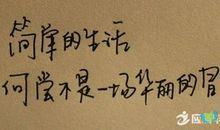 简单的生活
何尝不是一场华丽的冒